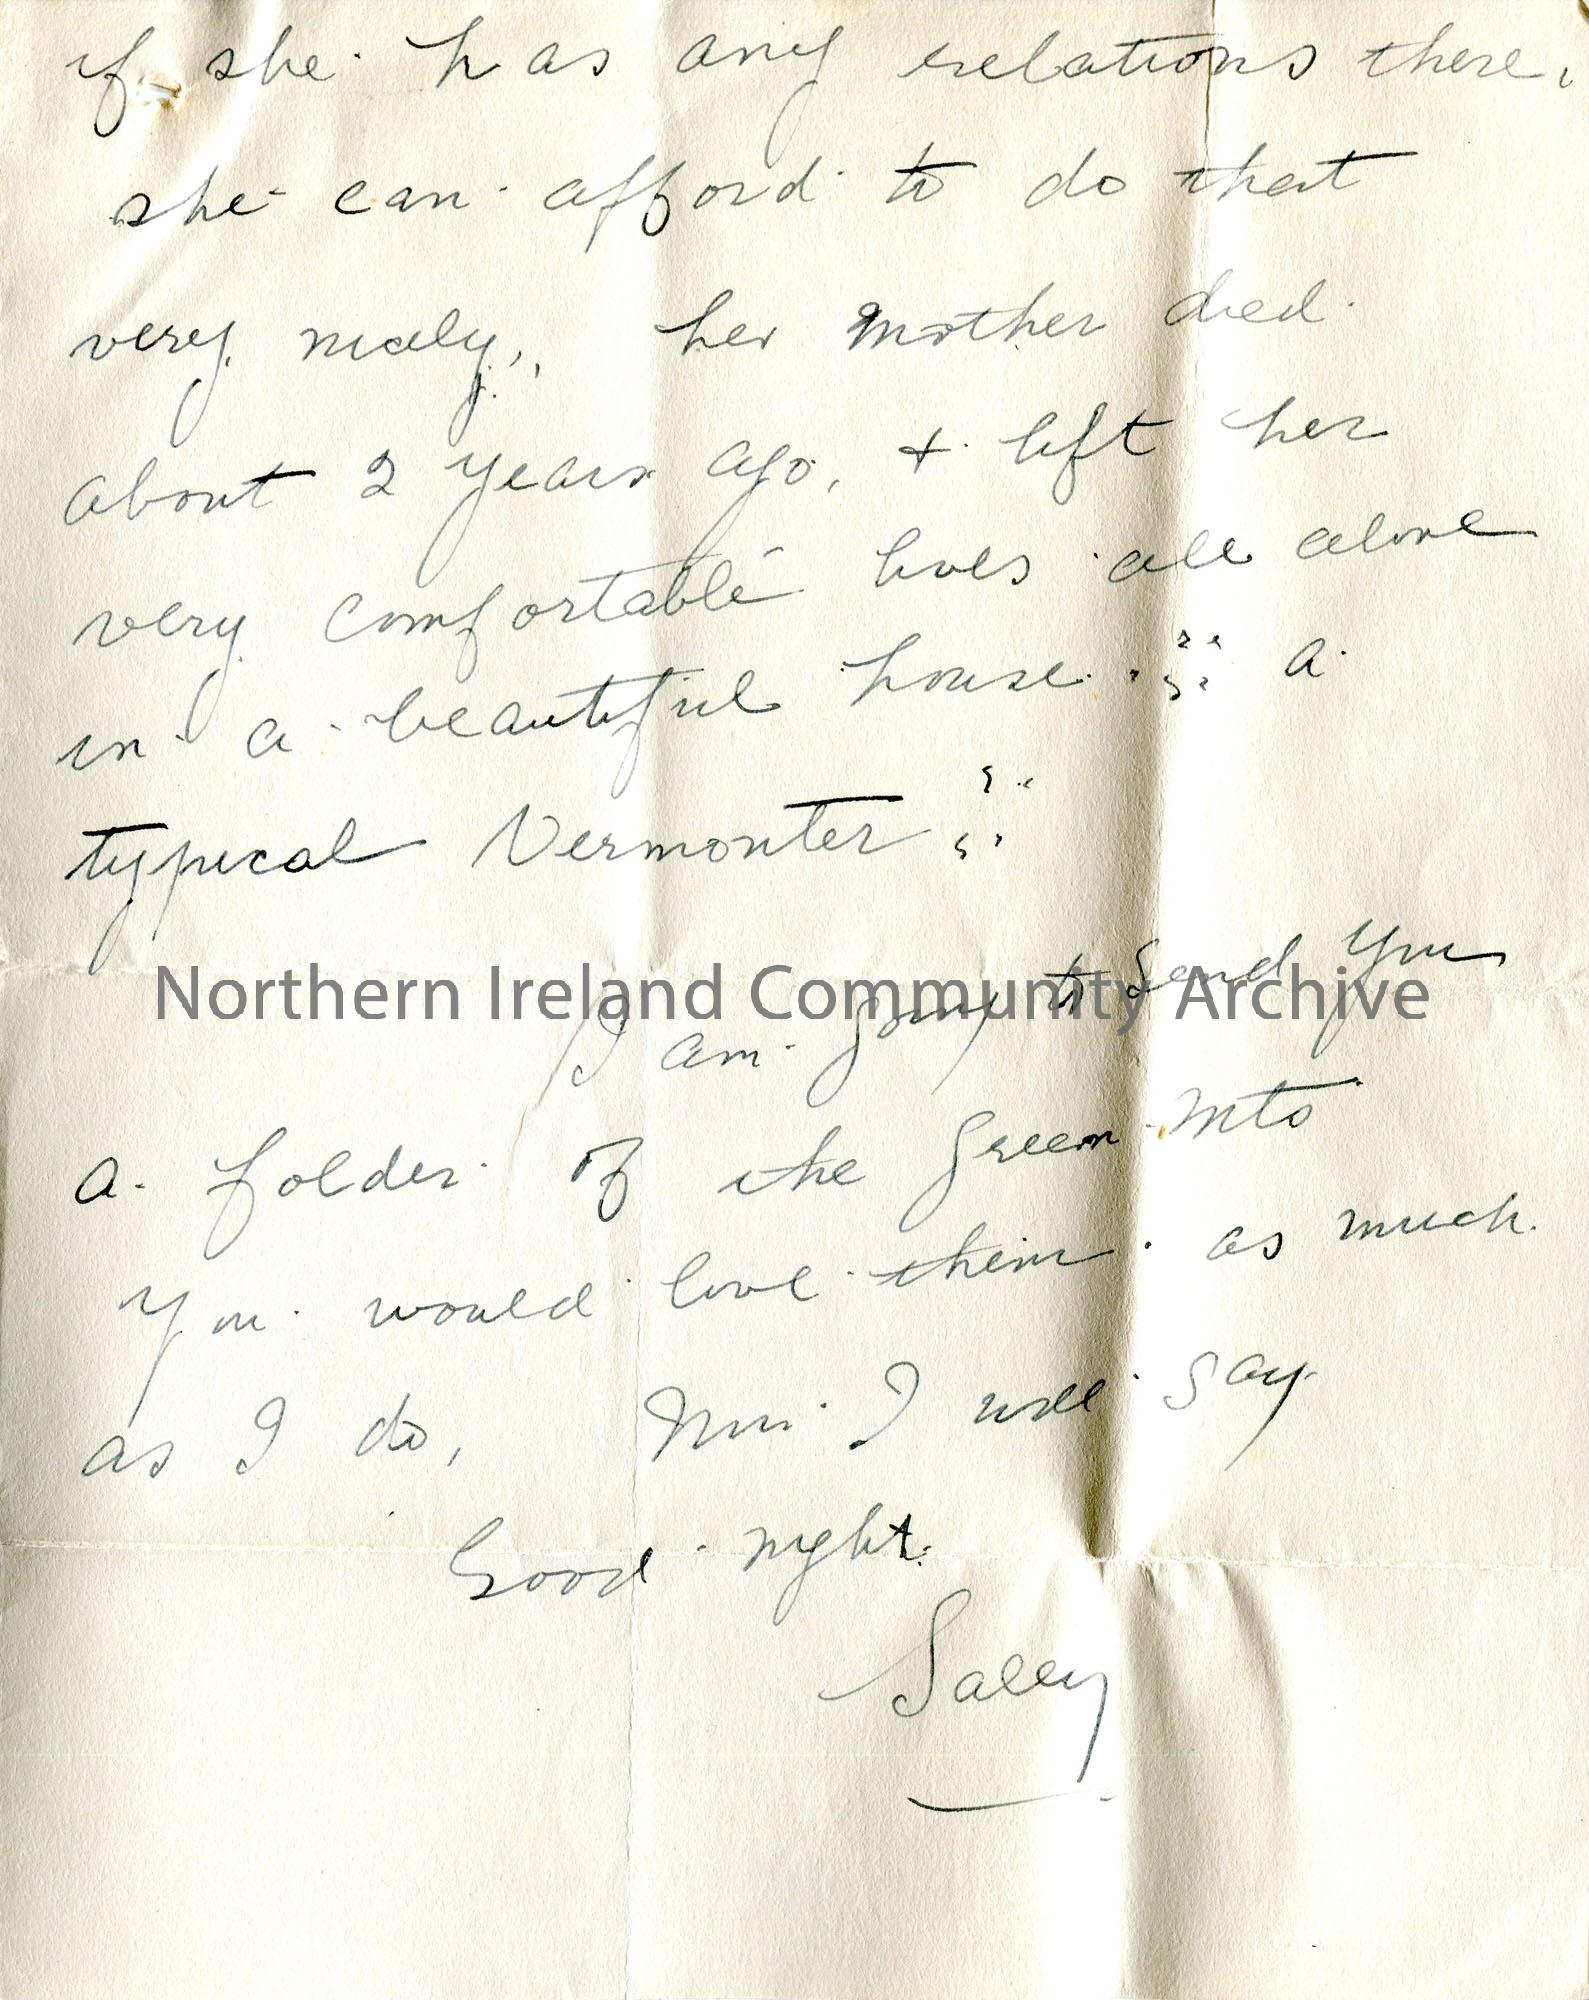 if she has any relations there,
she can afford to do that
very nicely,, her mother died
about 2 years ago, + left her
very comfortable lives all alone
in a beautiful house. " a
typical Vermonter "
Northern Ireland Community Archive
I am going to send you
a folder of the Green Mts
you would love them as much
as I do, Now I will say
Good night.
Sally